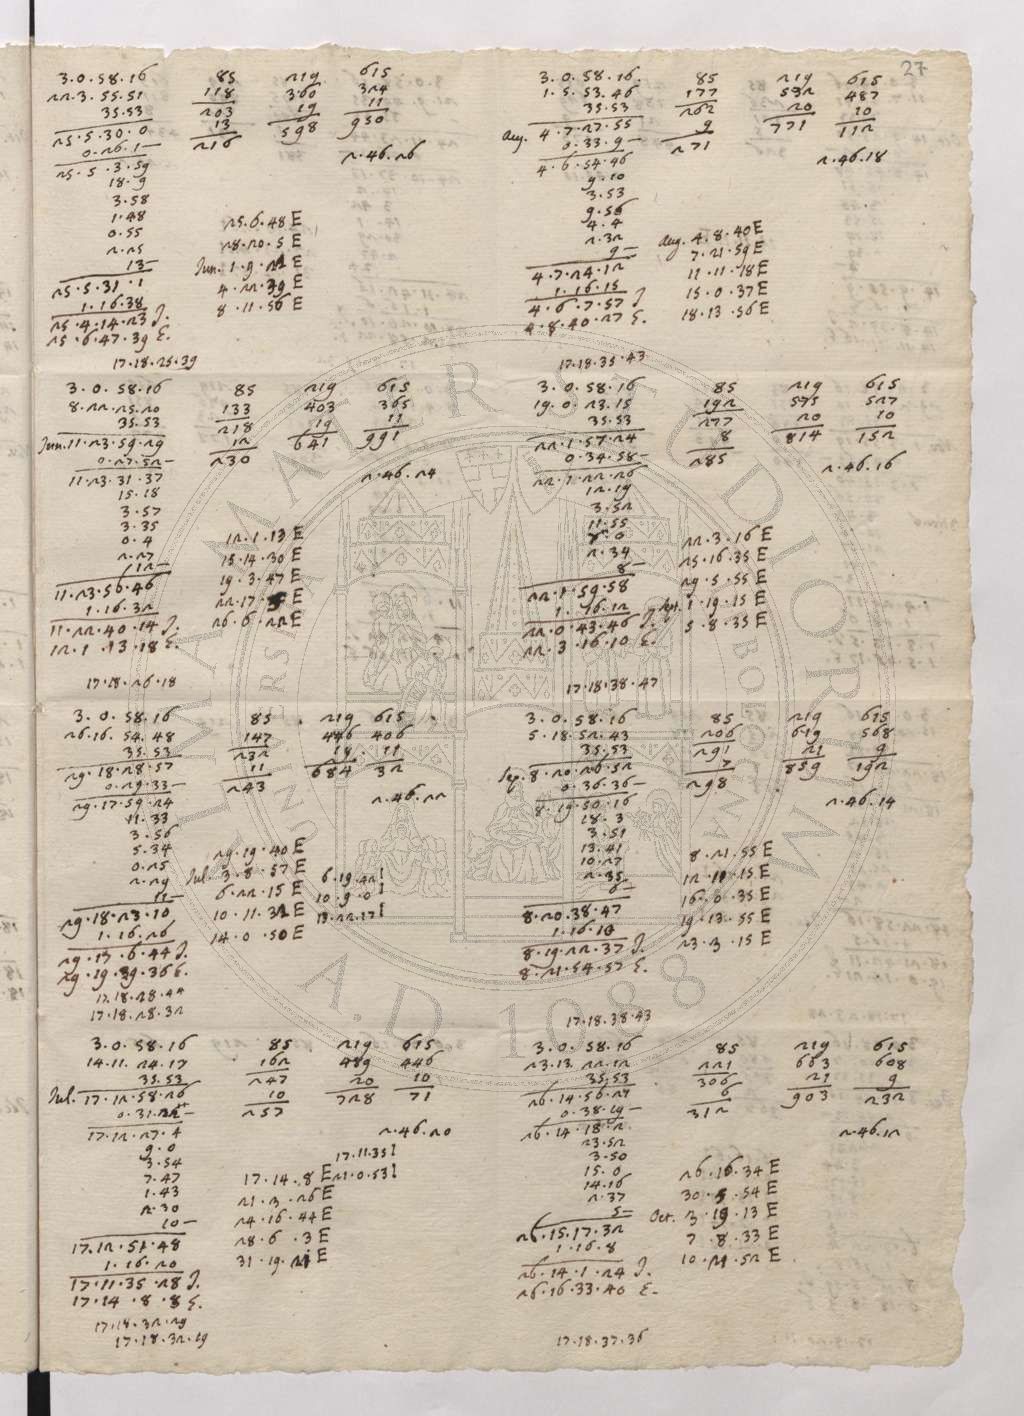 27
3.0.58.16 85 219 615
22.3.55.51 118 360 324
35.53 203 19 11
25.5.30.0 13 598 950
0.26.1— 216
25.5.3.59 2.46.26
18.9
3.58
1.48 25.6.48 E
0.55 28.20.5 E
2.25 Jun. 1.9.22 E
13— 4.22.39 E
25.5.31.1 8.11.56 E
1.16.38
25.4.14.23 J.
25.6.47.39 E.
17.18.25.39
3.0.58.16 85 219 615
8.22.25.20 133 403 365
35.53 218 19 11
Jun. 11.23.59.29 12 641 991
0.27.52— 230
11.23.31.37 2.46.24
15.18
3.57
3.35
0.4 12.1.13 E
2.27 15.14.30 E
12— 19.3.47 E
11.23.56.46 22.17.5 E
1.16.32 26.6.22 E
11.22.40.14 J.
12.1.13.18 E.
17.18.26.18
3.0.58.16 85 219 615
26.16.54.48 147 446 406
35.53 232 19 11
29.18.28.57 11 684 32
0.29.33— 243
29.17.59.24 2.46.22
11.33
3.56
5.34 29.19.40 E
0.25 Jul. 3.8.57 E 6.19.42 I
2.29 6.22.15 E 10.9.0 I
11— 10.11.32 E 13.22.17 I
29.18.23.10 14.0.50 E
1.16.26
29.17.6.44 J.
29.19.39.36 E.
17.18.28.44
17.18.28.32
3.0.58.16 85 219 615
14.11.24.17 162 489 446
35.53 247 20 10
Jul. 17.12.58.26 10 728 71
0.31.22— 257
17.12.27.4 2.46.20
9.0
3.54 17.11.35 I
7.47 17.14.8 E 21.0.53 I
1.43 21.3.26 E
2.30 24.16.44 E
10— 28.6.3 E
17.12.51.48 31.19.21 E
1.16.20
17.11.35.28 J.
17.14.8.8 E.
17.18.32.29
17.18.32.19
3.0.58.16 85 219 615
1.5.53.46 177 532 487
35.53 262 20 10
Aug. 4.7.27.55 9 771 112
0.33.9— 271
4.6.54.46 2.46.18
9.10
3.53
9.56
4.4 Aug. 4.8.40 E
2.32 7.21.59 E
9— 11.11.18 E
4.7.24.12 15.0.37 E
1.16.15 18.13.56 E
4.6.7.57 J.
4.8.40.27 E.
17.18.35.43
3.0.58.16 85 219 615
19.0.23.15 192 575 527
35.53 277 20 10
22.1.57.24 8 814 152
0.34.58— 285
22.1.22.26 2.46.16
12.19
3.52
11.55
7.0 22.3.16 E
2.34 25.16.35 E
8— 29.5.55 E
22.1.59.58 Sep. 1.19.15 E
1.16.12 5.8.35 E
22.0.43.46 J.
22.3.16.10 E.
17.18.38.47
3.0.58.16 85 219 615
5.18.52.43 206 619 568
35.53 291 21 9
Sep. 8.20.26.52 7 859 192
0.36.36— 298
8.19.50.16 2.46.14
18.3
3.51
13.41
10.27 8.21.55 E
2.35 12.11.15 E
6— 16.0.35 E
8.20.38.47 19.13.55 E
1.16.10 23.3.15 E
8.19.22.37 J.
8.21.54.57 E.
17.18.38.43
3.0.58.16 85 219 615
23.13.22.12 221 663 608
35.53 306 21 9
26.14.56.27 6 903 232
0.38.19— 312
26.14.18.2 2.46.12
23.52
3.50
15.0
14.16 26.16.34 E
2.37 30.5.54 E
5— Oct. 3.19.13 E
26.15.17.32 7.8.33 E
1.16.8 10.21.52 E
26.14.1.24 J.
26.16.33.40 E.
17.18.37.36
ALMA MATER STUDIORUM
A.D. 1088